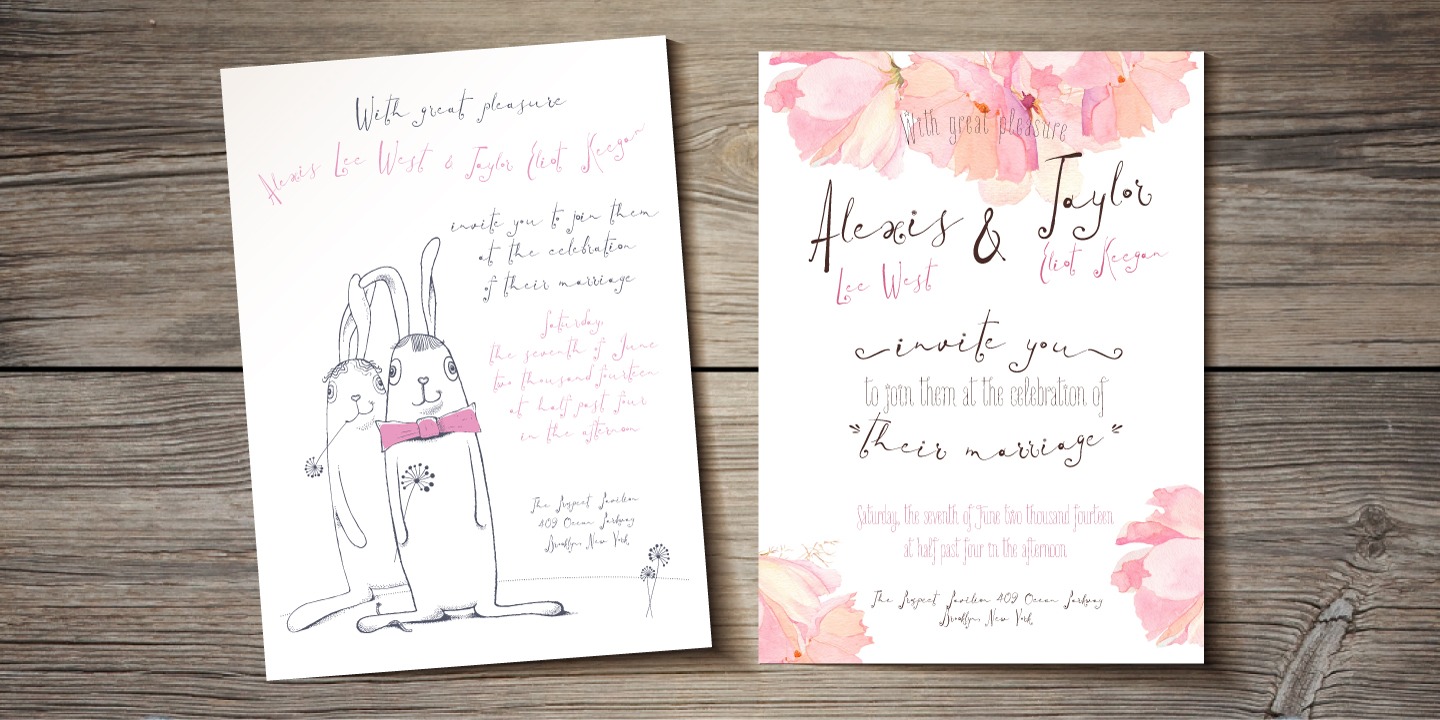 With great pleasure
Alexis Lee West & Taylor Eliot Keegan
invite you to join them
at the celebration
of their marriage
Saturday,
the seventh of June
two thousand fourteen
at half past four
in the afternoon
The Prospect Pavilion
409 Ocean Parkway
Brooklyn, New York
With great pleasure
Alexis & Taylor
Lee West Eliot Keegan
invite you
to join them at the celebration of
"their marriage"
Saturday, the seventh of June two thousand fourteen
at half past four in the afternoon
The Prospect Pavilion 409 Ocean Parkway
Brooklyn, New York